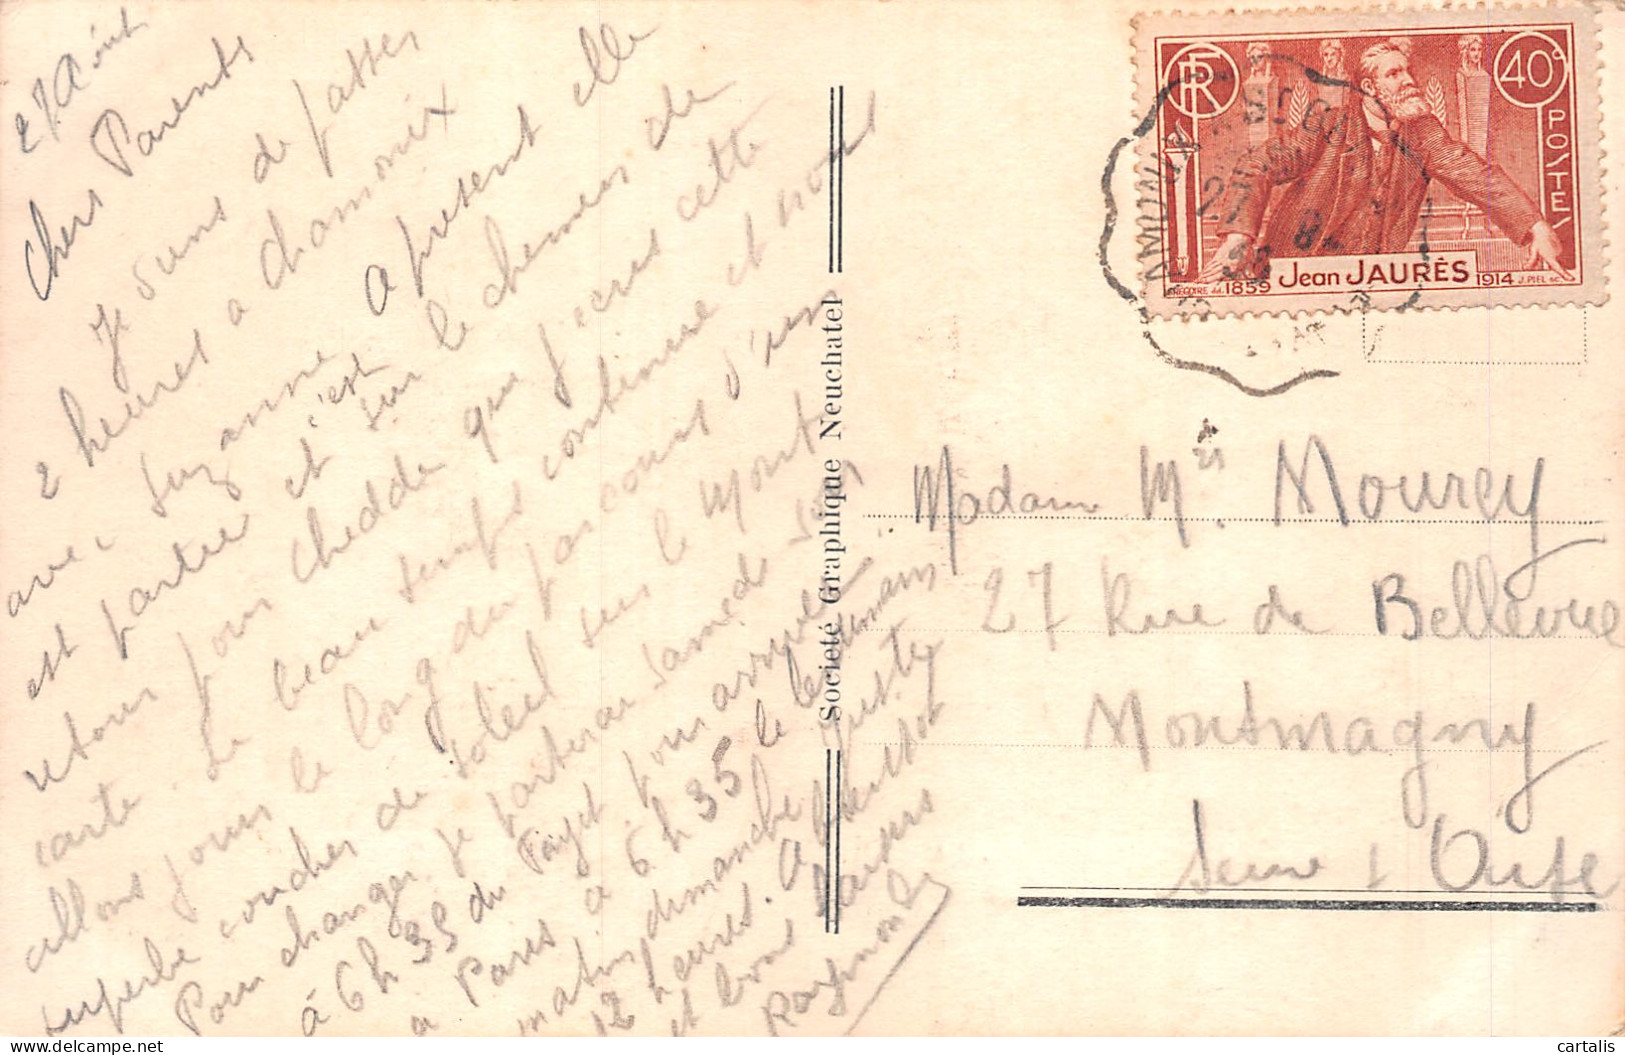 27 Aout
Chers Parents
Je viens de passer
2 heures a chamonix
avec Suzanne a present elle
est partie et c'est sur le chemin de
retour pour chedde que j'ecris cette
carte. Le beau temps continue et nous
allons jouir le long du parcours d'un
superbe coucher de soleil sur le Mont
Pour changer je partirai samedi soir
à 6 h 35 du Fayet pour arriver
a Paris à 6 h 35 le lendemain
matin dimanche
12 heures. A bientot
et bons baisers
Raymonde
Société Graphique Neuchatel
RF
40c
POSTES
Jean JAURÈS
1859
1914
J. PIEL sc.
CHAMONIX
27 8
38
Madame Mis Mourey
27 Rue de Bellevue
Montmagny
Seine & Oise
cartalis